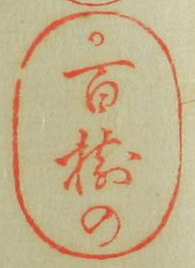 百樹の